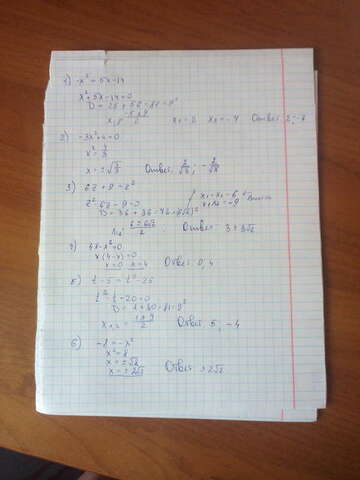 1) -x² = 5x-14
x²+5x-14=0
D = 25 + 56 = 81 = 9²
x₁ = 2 x₂ = -7 Ответ 2; -7
2) -3x²+4=0
x² = 4/3
x = ±√4/3 Ответ: 2/√3; -2/√3
3) 6z + 9 = z²
z²-6z-9=0
D = 36 + 36 = 72 = (6√2)²
Ответ: 3 ± 3√2
4) 4x-x²=0
x(4-x)=0
x=0 x=4 Ответ: 0; 4
5) t-5 = t²-25
t²-t-20=0
D = 1+80=81=9²
Ответ 5; -4
6) -8 = -x²
x²=8
x=±√8
x=±2√2 Ответ ±2√2